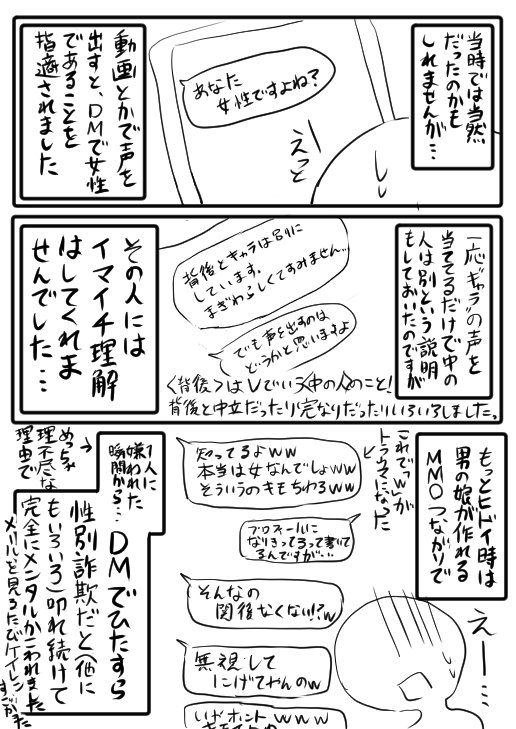 当時では当然
だったのかも
しれませんが…
あなた
女性ですよね?
えっと
動画とかで声を
出すと、DMで女性
であることを
指摘されました
一応“キャラ”の声を
当ててるだけで中の
人は別という説明
もしておいたのですが
背後とキャラは別に
しています。
まぎわらしくてすみません…
でも声を出すのは
どうかと思いますよ
その人には
イマイチ理解
はしてくれま
せんでした…
〈背後〉はVでいう中の人のこと!
背後と中立だったり完なりだったりいろいろしました。
もっとヒドイ時は
男の娘が作れる
MMOつながりで
これで「w」が
トラウマになった
知ってるよww
本当は女なんでしょww
そういうのキモちわるww
プロフィールに
なりきってるって書いて
るんですが…
そんなの
関係なくない!?w
無視して
にげてやんのw
いやホント www
えー…
1人に
嫌われた
瞬間から…
めっちゃ
理不尽な
理由で
DMでひたすら
性別詐欺だと(他に
もいろいろ)叩れ続けて
完全にメンタルがこわれました
メールを見るたびケイレン
すごかった